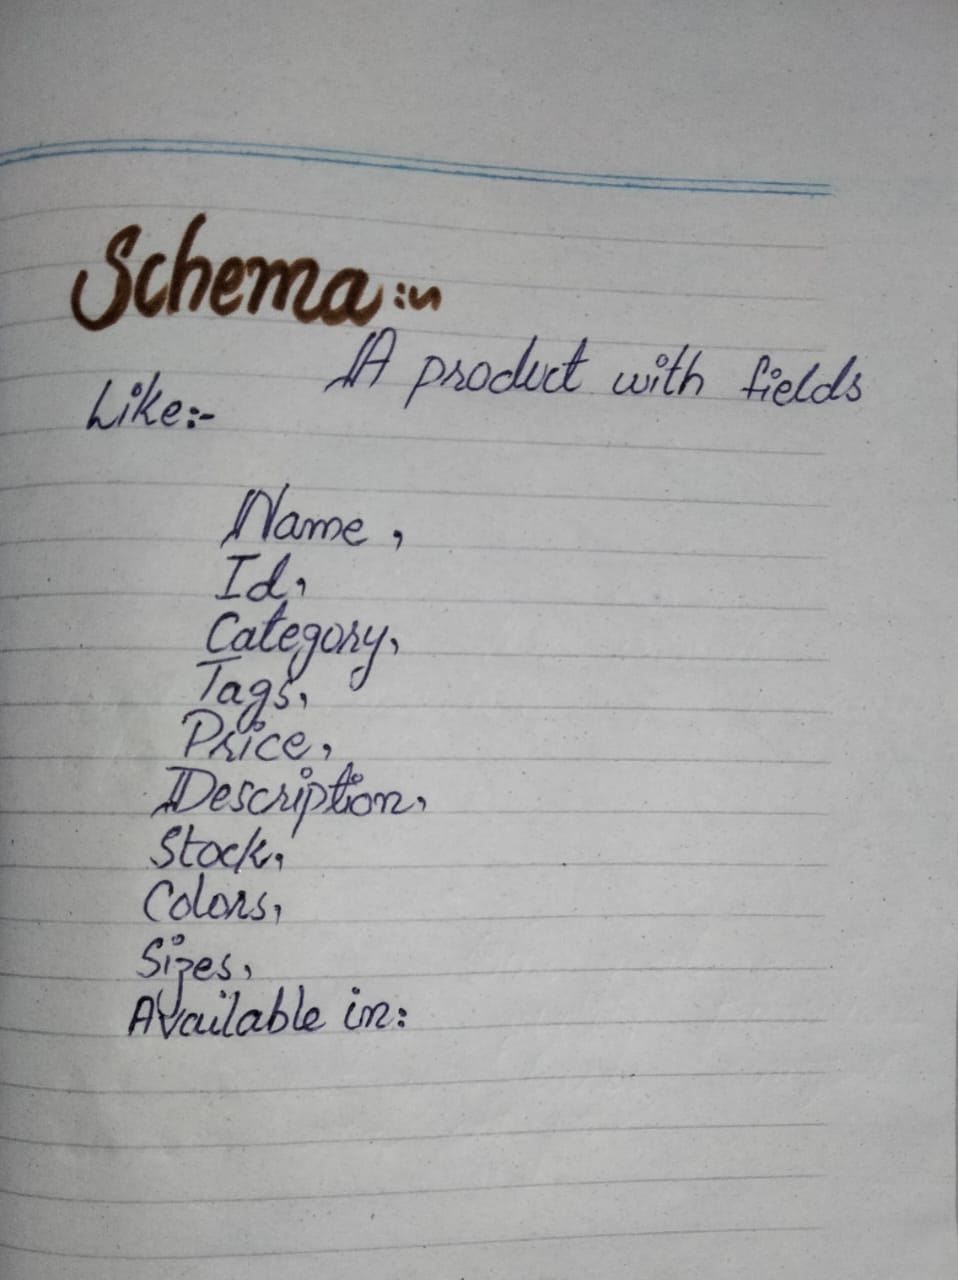 Schema:~
A product with fields
Like:-
Name,
Id,
Category,
Tags,
Price,
Description,
Stock,
Colors,
Sizes,
Available in: